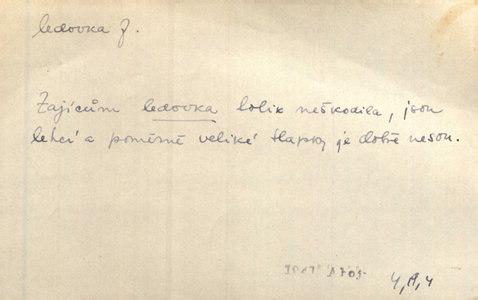 ledovka f.
Zajícům ledovka tolik neškodila, jsou
lehcí a poměrně veliké tlapky je dobře nesou.
4,A,4